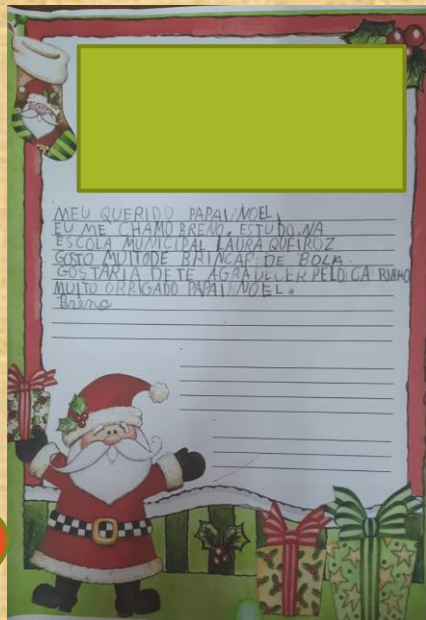 MEU QUERIDO PAPAI NOEL,
EU ME CHAMO BRENO, ESTUDO NA
ESCOLA MUNICIPAL LAURA QUEIROZ
GOSTO MUITODE BRINCAP DE BOLA.
GOSTARIA DETE AGRADECER PELO CARINHO
MUITO ORRIGADO PAPAI NOEL.
Breno